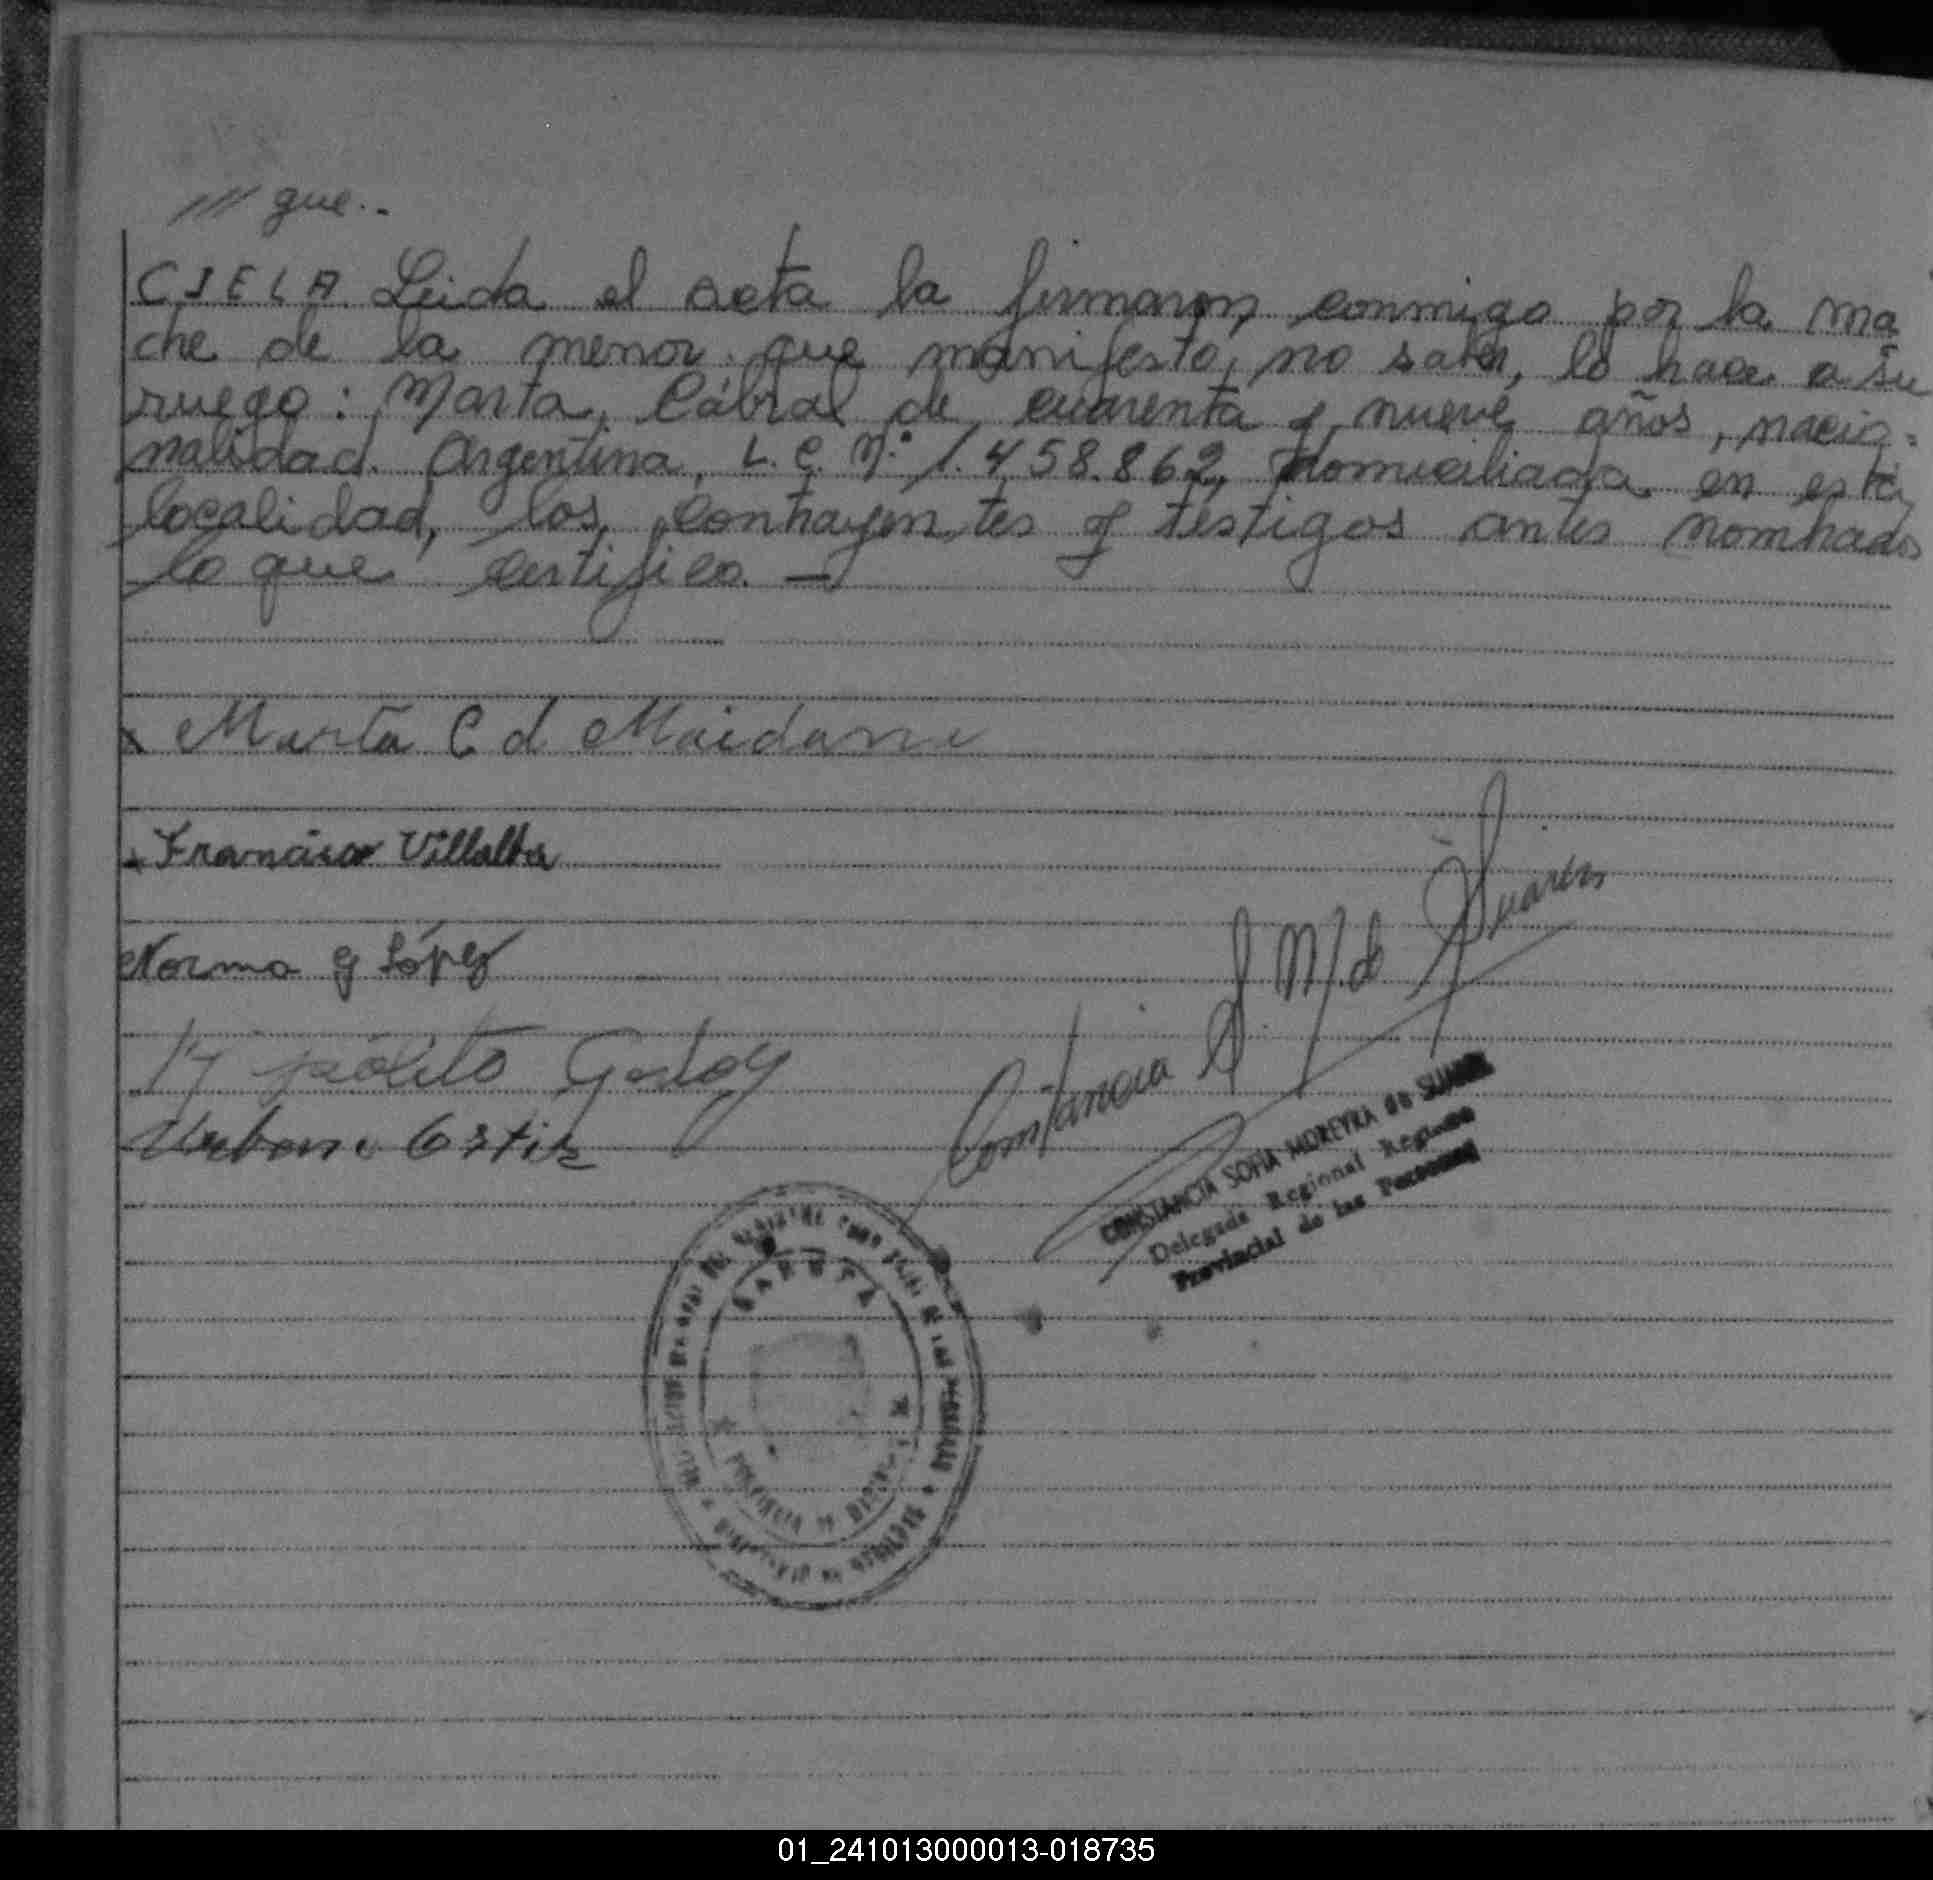 /// gue..
CIELA. Leida el acta la firmaron conmigo por la ma
dre de la menor que manifesto, no saber, lo hace a su
ruego: Marta Cábral de cuarenta y nueve años, nacio-
nalidad Argentina, L.C. N° 1.458.862, domiciliada en esta
localidad, los contrayentes y testigos antes nombrados
lo que certifico. —
x Marta C d Maidana
Francisco Villalba
Norma G López
Hipólito Godoy
Constancia S. M. de Suárez
CONSTANCIA SOFIA MOREYRA de SUAREZ
Delegada Regional Registro
Provincial de las Personas
01_241013000013-018735